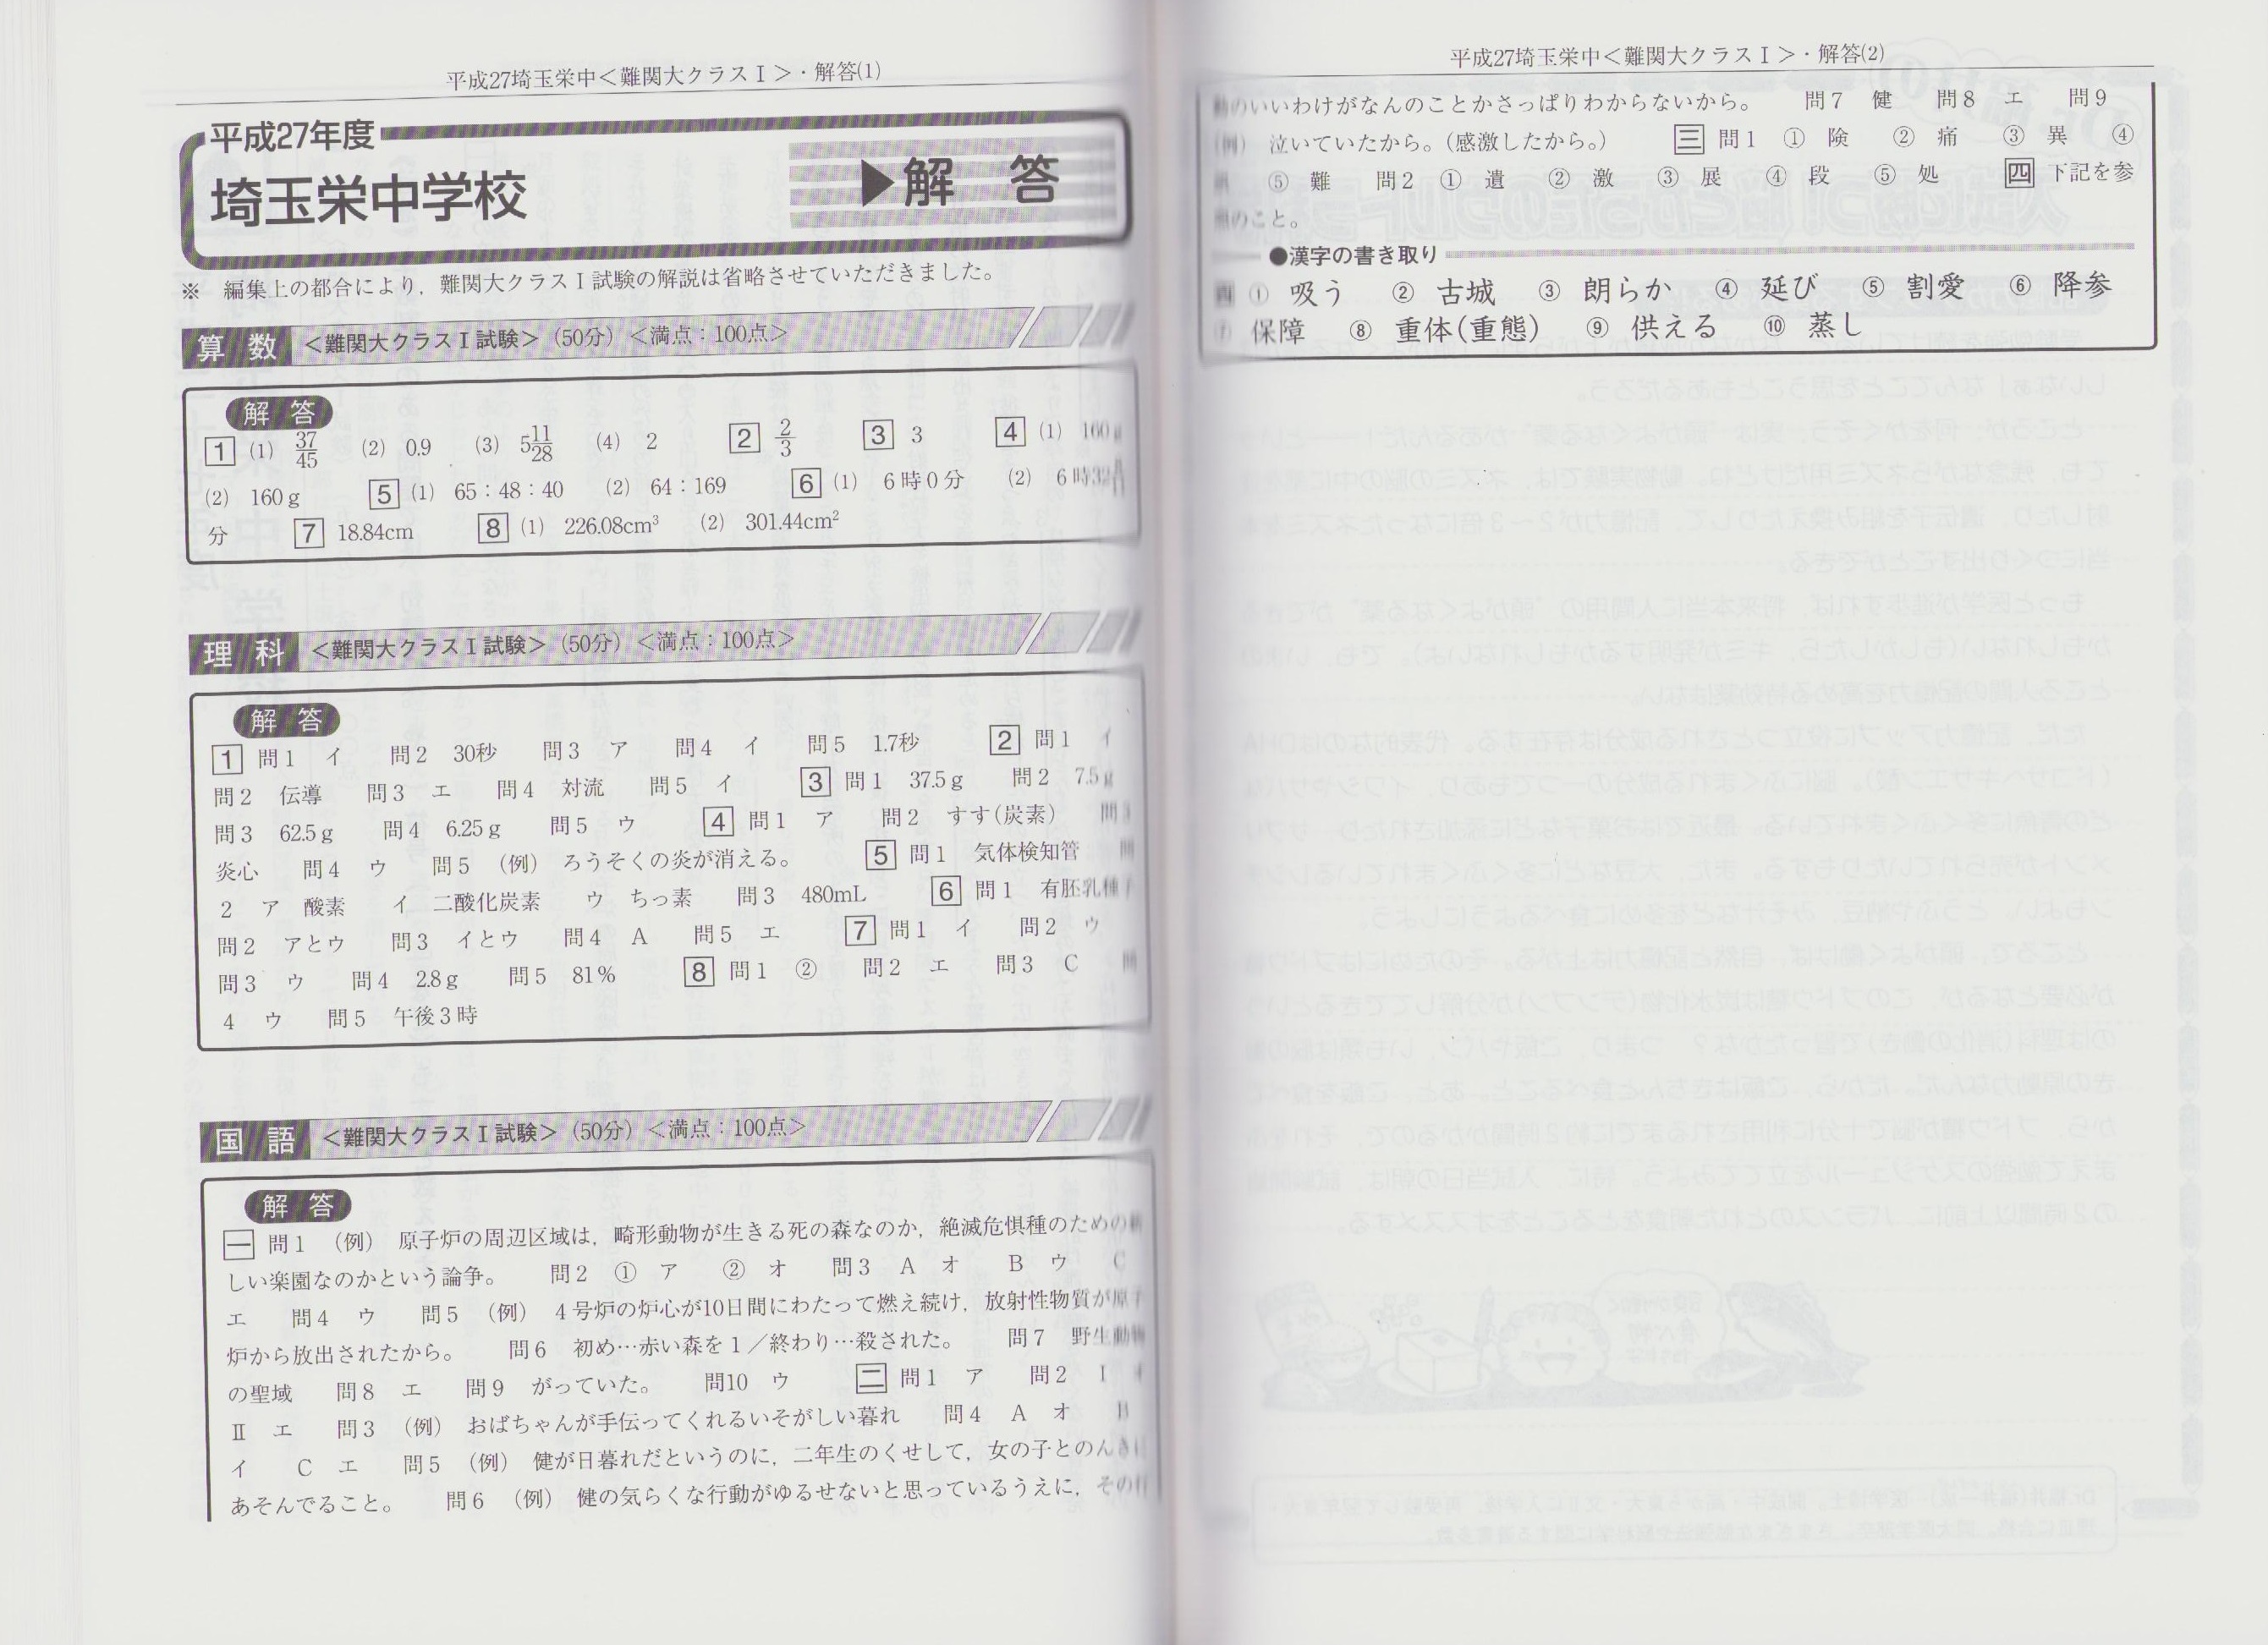 平成27埼玉栄中＜難関大クラスⅠ＞・解答(1)
平成27年度
埼玉栄中学校
▶解 答
※ 編集上の都合により，難関大クラスⅠ試験の解説は省略させていただきました。
算 数 ＜難関大クラスⅠ試験＞（50分）＜満点：100点＞
解 答
1 (1) 37/45 (2) 0.9 (3) 5 11/28 (4) 2 2 2/3 3 3 4 (1) 160g
(2) 160g 5 (1) 65：48：40 (2) 64：169 6 (1) 6時0分 (2) 6時
分 7 18.84cm 8 (1) 226.08cm³ (2) 301.44cm²
理 科 ＜難関大クラスⅠ試験＞（50分）＜満点：100点＞
解 答
1 問1 イ 問2 30秒 問3 ア 問4 イ 問5 1.7秒 2 問1 イ
問2 伝導 問3 エ 問4 対流 問5 イ 3 問1 37.5g 問2 7.5g
問3 62.5g 問4 6.25g 問5 ウ 4 問1 ア 問2 すす(炭素) 問3
炎心 問4 ウ 問5 （例） ろうそくの炎が消える。 5 問1 気体検知管 問
2 ア 酸素 イ 二酸化炭素 ウ ちっ素 問3 480mL 6 問1 有胚乳種子
問2 アとウ 問3 イとウ 問4 A 問5 エ 7 問1 イ 問2 ウ
問3 ウ 問4 2.8g 問5 81％ 8 問1 ② 問2 エ 問3 C 問
4 ウ 問5 午後3時
国 語 ＜難関大クラスⅠ試験＞（50分）＜満点：100点＞
解 答
一 問1 （例） 原子炉の周辺区域は，畸形動物が生きる死の森なのか，絶滅危惧種のための
しい楽園なのかという論争。 問2 ① ア ② オ 問3 A オ B ウ C
エ 問4 ウ 問5 （例） 4号炉の炉心が10日間にわたって燃え続け，放射性物質が原子
炉から放出されたから。 問6 初め…赤い森を1／終わり…殺された。 問7 野生動物
の聖域 問8 エ 問9 がっていた。 問10 ウ 二 問1 ア 問2 Ⅰ
Ⅱ エ 問3 （例） おばちゃんが手伝ってくれるいそがしい暮れ 問4 A オ B
イ C エ 問5 （例） 健が日暮れだというのに，二年生のくせして，女の子とのんきに
あそんでること。 問6 （例） 健の気らくな行動がゆるせないと思っているうえに，その行
平成27埼玉栄中＜難関大クラスⅠ＞・解答(2)
動のいいわけがなんのことかさっぱりわからないから。 問7 健 問8 エ 問9
（例） 泣いていたから。(感激したから。) 三 問1 ① 険 ② 痛 ③ 異 ④
⑤ 難 問2 ① 遺 ② 激 ③ 展 ④ 段 ⑤ 処 四 下記を参
照のこと。
●漢字の書き取り
① 吸う ② 古城 ③ 朗らか ④ 延び ⑤ 割愛 ⑥ 降参
⑦ 保障 ⑧ 重体(重態) ⑨ 供える ⑩ 蒸し